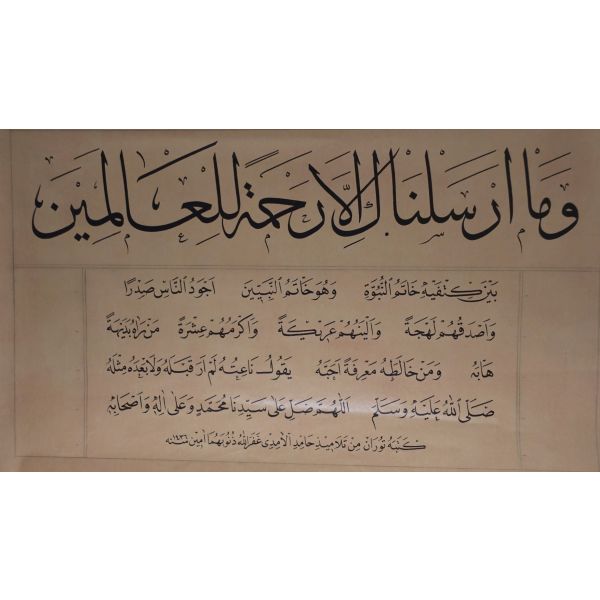 وَمَا أَرْسَلْنَاكَ إِلَّا رَحْمَةً لِلْعَالَمِينَ
بَيْنَ كَتِفَيْهِ خَاتَمُ النُّبُوَّةِ وَهُوَ خَاتَمُ النَّبِيِّينَ اَجْوَدُ النَّاسِ صَدْرًا
وَاَصْدَقُهُمْ لَهْجَةً وَاَلْيَنُهُمْ عَرِيكَةً وَاَكْرَمُهُمْ عِشْرَةً مَنْ رَاٰهُ بَدِيهَةً
هَابَهُ وَمَنْ خَالَطَهُ مَعْرِفَةً اَحَبَّهُ يَقُولُ نَاعِتُهُ لَمْ اَرَ قَبْلَهُ وَلَا بَعْدَهُ مِثْلَهُ
صَلَّى اللهُ عَلَيْهِ وَسَلَّمَ اَللّٰهُمَّ صَلِّ عَلَى سَيِّدِنَا مُحَمَّدٍ وَعَلَى اٰلِهِ وَاَصْحَابِهِ
كَتَبَهُ تُورَانُ مِنْ تَلَامِيذِ حَامِدِ الْاٰمِدِي غَفَرَ اللهُ ذُنُوبَهُمَا اٰمِين سَنَة